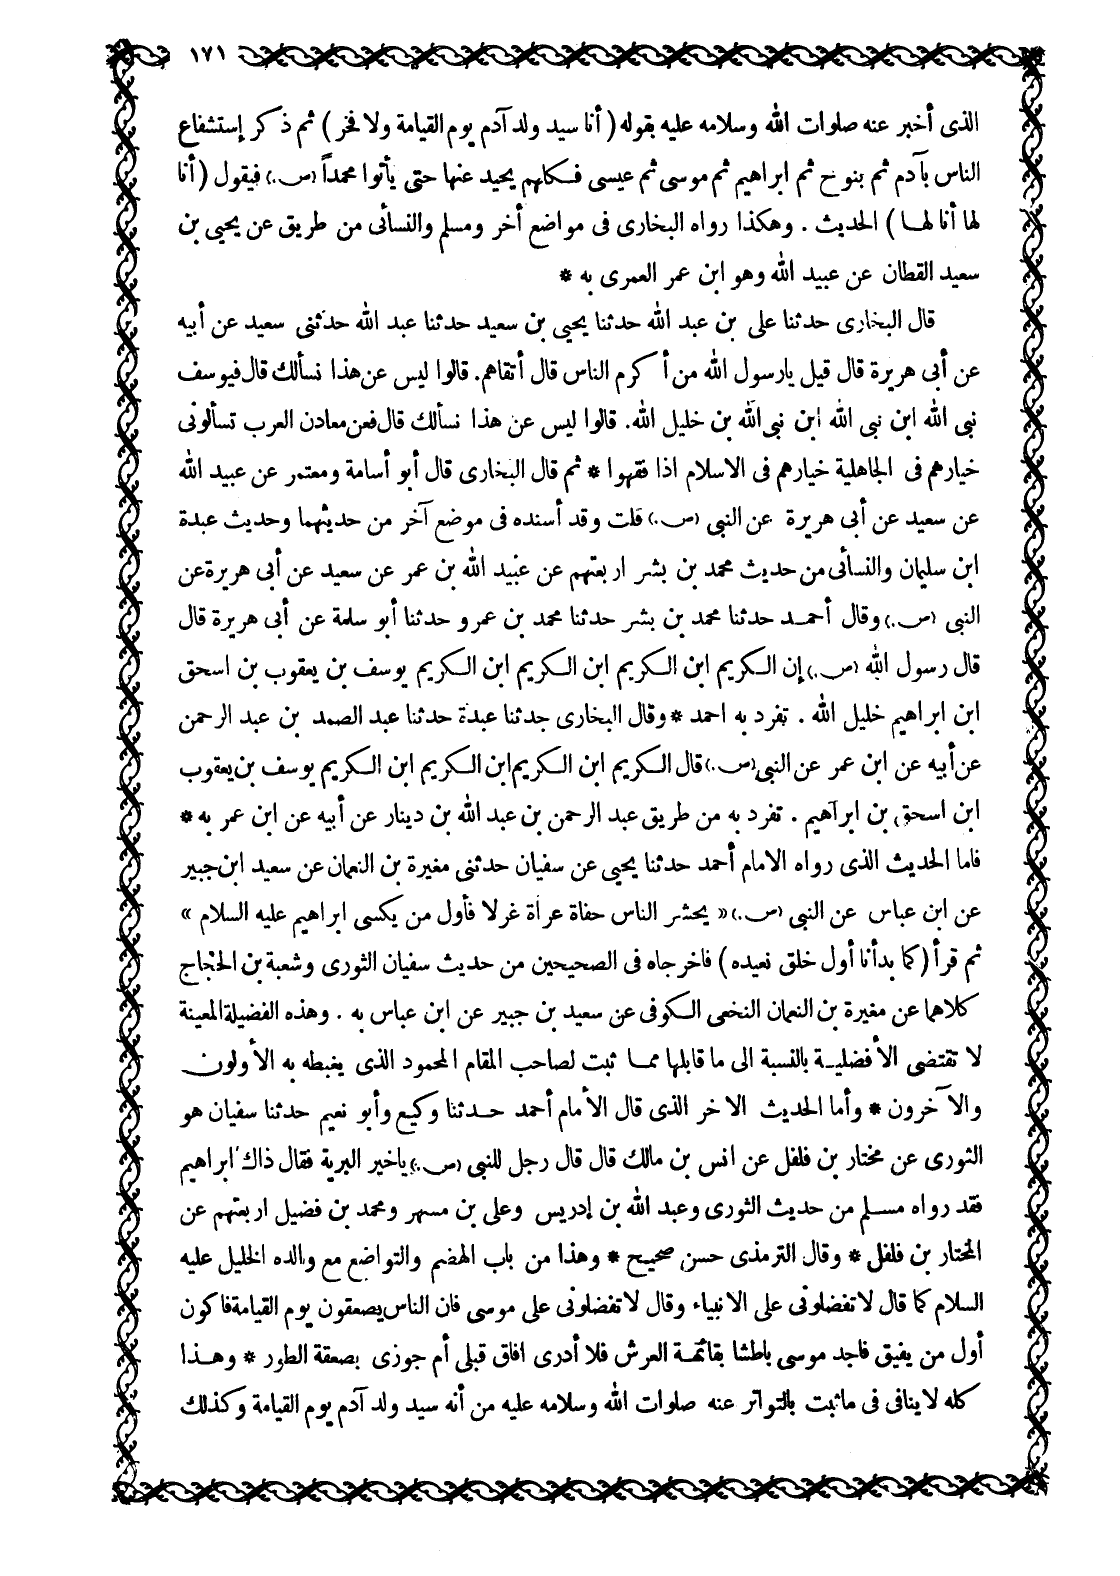 ١٧١
الذى أخبر عنه صلوات الله وسلامه عليه بقوله ( أنا سيد ولد آدم يوم القيامة ولا فخر ) ثم ذكر إستشفاع
الناس بآدم ثم بنوح ثم ابراهيم ثم موسى ثم عيسى فكلهم يحيد عنها حتى يأتوا محمداً (ص.) فيقول ( أنا
لها أنا لها ) الحديث . وهكذا رواه البخارى فى مواضع أخر ومسلم والنسائى من طريق عن يحيى بن
سعيد القطان عن عبيد الله وهو ابن عمر العمرى به *
قال البخارى حدثنا على بن عبد الله حدثنا يحيى بن سعيد حدثنا عبد الله حدثنى سعيد عن أبيه
عن أبى هريرة قال قيل يارسول الله من أكرم الناس قال أتقاهم. قالوا ليس عن هذا نسألك قال فيوسف
نبى الله ابن نبى الله ابن نبى الله بن خليل الله. قالوا ليس عن هذا نسألك قال فعن معادن العرب تسألونى
خيارهم فى الجاهلية خيارهم فى الاسلام اذا فقهوا * ثم قال البخارى قال أبو أسامة ومعتمر عن عبيد الله
عن سعيد عن أبى هريرة عن النبى (ص.) قلت وقد أسنده فى موضع آخر من حديثهما وحديث عبدة
ابن سليمان والنسائى من حديث محمد بن بشر اربعتهم عن عبيد الله بن عمر عن سعيد عن أبى هريرة عن
النبى (ص.) وقال أحمد حدثنا محمد بن بشر حدثنا محمد بن عمرو حدثنا أبو سلمة عن أبى هريرة قال
قال رسول الله (ص.) إن الكريم ابن الكريم ابن الكريم ابن الكريم يوسف بن يعقوب بن اسحق
ابن ابراهيم خليل الله . تفرد به احمد * وقال البخارى حدثنا عبدة حدثنا عبد الصمد بن عبد الرحمن
عن أبيه عن ابن عمر عن النبى (ص.) قال الكريم ابن الكريم ابن الكريم ابن الكريم يوسف بن يعقوب
ابن اسحق بن ابراهيم . تفرد به من طريق عبد الرحمن بن عبد الله بن دينار عن أبيه عن ابن عمر به *
فاما الحديث الذى رواه الامام أحمد حدثنا يحيى عن سفيان حدثنى مغيرة بن النعمان عن سعيد ابن جبير
عن ابن عباس عن النبى (ص.) « يحشر الناس حفاة عراة غرلا فأول من يكسى ابراهيم عليه السلام »
ثم قرأ ( كما بدأنا أول خلق نعيده ) فاخرجاه فى الصحيحين من حديث سفيان الثورى وشعبة بن الحجاج
كلاهما عن مغيرة بن النعمان النخعى الكوفى عن سعيد بن جبير عن ابن عباس به . وهذه الفضيلة المعينة
لا تقتضى الأفضلية بالنسبة الى ما قابلها مما ثبت لصاحب المقام المحمود الذى يغبطه به الأولون
والآخرون * وأما الحديث الاخر الذى قال الأمام أحمد حدثنا وكيع وأبو نعيم حدثنا سفيان هو
الثورى عن مختار بن فلفل عن انس بن مالك قال قال رجل للنبى (ص.) ياخير البرية فقال ذاك ابراهيم
فقد رواه مسلم من حديث الثورى وعبد الله بن إدريس وعلى بن مسهر ومحمد بن فضيل اربعتهم عن
المختار بن فلفل * وقال الترمذى حسن صحيح * وهذا من باب الهضم والتواضع مع والده الخليل عليه
السلام كما قال لا تفضلونى على الانبياء وقال لا تفضلونى على موسى فان الناس يصعقون يوم القيامة فاكون
أول من يفيق فاجد موسى باطشا بقائمة العرش فلا أدرى افاق قبلى أم جوزى بصعقة الطور * وهذا
كله لا ينافى فى ما ثبت بالتواتر عنه صلوات الله وسلامه عليه من أنه سيد ولد آدم يوم القيامة وكذلك